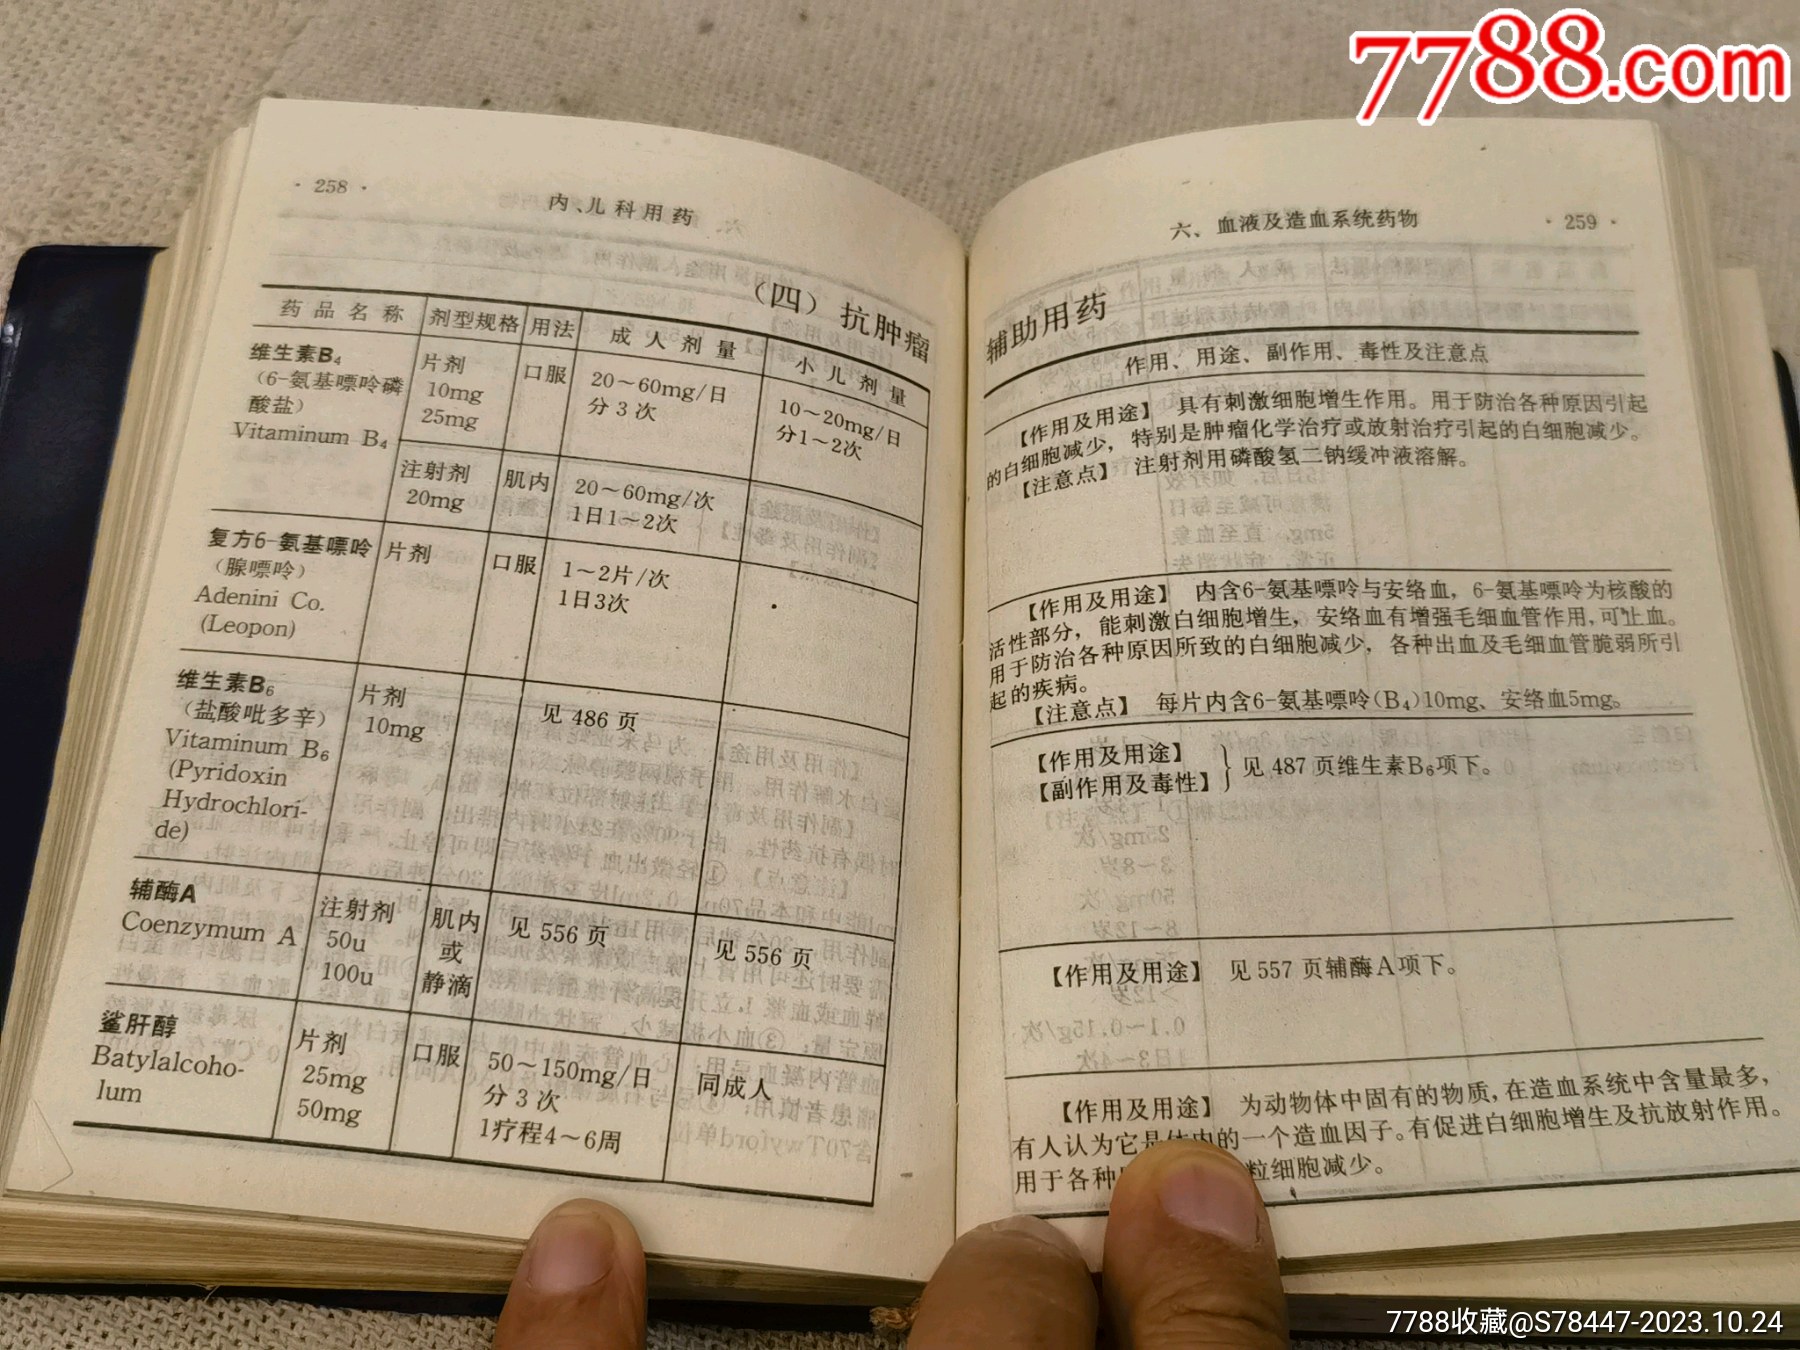 7788.com
· 258 ·
内、儿科用药
(四) 抗肿瘤
药品名称 剂型规格 用法 成人剂量 小儿剂量
维生素B₄
(6-氨基嘌呤磷
酸盐)
Vitaminum B₄
片剂
10mg
25mg
口服
20~60mg/日
分3次
10~20mg/日
分1~2次
注射剂
20mg
肌内
20~60mg/次
1日1~2次
复方6-氨基嘌呤
(腺嘌呤)
Adenini Co.
(Leopon)
片剂
口服
1~2片/次
1日3次
维生素B₆
(盐酸吡多辛)
Vitaminum B₆
(Pyridoxin
Hydrochlori-
de)
片剂
10mg
见 486 页
辅酶A
Coenzymum A
注射剂
50u
100u
肌内
或
静滴
见 556 页
见 556 页
鲨肝醇
Batylalcoho-
lum
片剂
25mg
50mg
口服
50~150mg/日
分3次
1疗程4~6周
同成人
六、血液及造血系统药物
· 259 ·
辅助用药
作用、用途、副作用、毒性及注意点
【作用及用途】 具有刺激细胞增生作用。用于防治各种原因引起
的白细胞减少,特别是肿瘤化学治疗或放射治疗引起的白细胞减少。
【注意点】 注射剂用磷酸氢二钠缓冲液溶解。
【作用及用途】 内含6-氨基嘌呤与安络血,6-氨基嘌呤为核酸的
活性部分,能刺激白细胞增生,安络血有增强毛细血管作用,可止血。
用于防治各种原因所致的白细胞减少,各种出血及毛细血管脆弱所引
起的疾病。
【注意点】 每片内含6-氨基嘌呤(B₄)10mg、安络血5mg。
【作用及用途】
【副作用及毒性】
} 见 487 页维生素B₆项下。
【作用及用途】 见 557 页辅酶A项下。
【作用及用途】 为动物体中固有的物质,在造血系统中含量最多,
有人认为它是体内的一个造血因子。有促进白细胞增生及抗放射作用。
用于各种 粒细胞减少。
7788收藏@S78447-2023.10.24